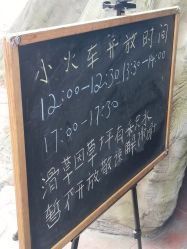 小火车开放时间
12:00-12:30 13:30-14:00
17:00-17:30
滑草因草坪有积水
暂不开放敬请谅解